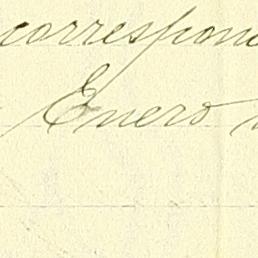 correspon
Enero